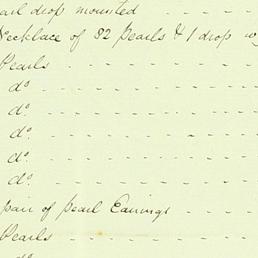 earl drop mounted - - - - -
Necklace of 32 Pearls & 1 drop
Pearls - - - - - - - -
do. - - - - - - - - -
do. - - - - - - - - -
do. - - - - - - - - -
do. - - - - - - - - -
do. - - - - - - - - -
pair of pearl Earrings - - - -
Pearls - - - - - - - -
do.